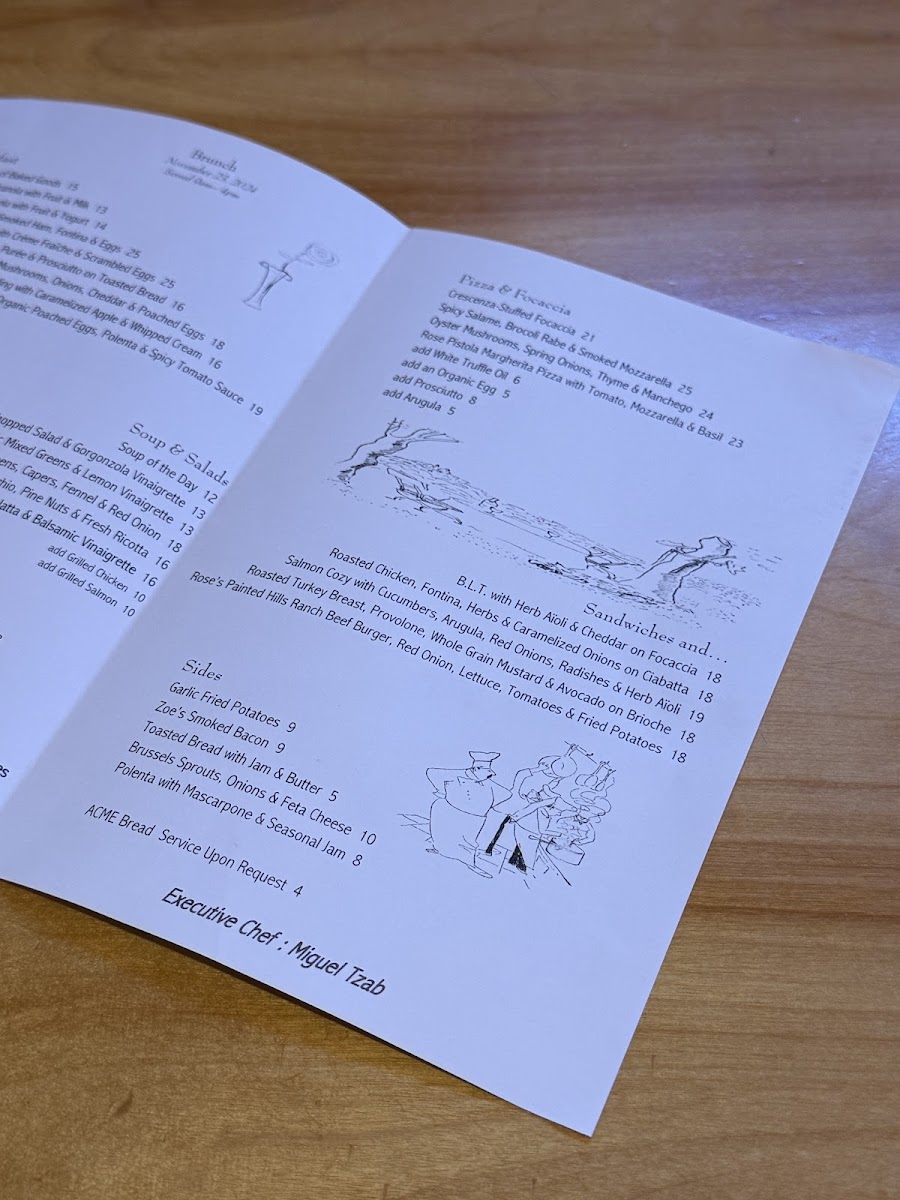 Brunch
November 29, 2024
of Baked Goods 15
with Fruit & Milk 13
with Fruit & Yogurt 14
Smoked Ham, Fontina & Eggs 25
Crème Fraîche & Scrambled Eggs 25
Purée & Prosciutto on Toasted Bread 16
Mushrooms, Onions, Cheddar & Poached Eggs 18
with Caramelized Apple & Whipped Cream 16
Organic-Poached Eggs, Polenta & Spicy Tomato Sauce 19
Soup & Salads
Soup of the Day 12
opped Salad & Gorgonzola Vinaigrette 13
- Mixed Greens & Lemon Vinaigrette 13
ens, Capers, Fennel & Red Onion 18
hio, Pine Nuts & Fresh Ricotta 16
atta & Balsamic Vinaigrette 16
add Grilled Chicken 10
add Grilled Salmon 10
es
Pizza & Focaccia
Crescenza-Stuffed Focaccia 21
Spicy Salame, Brocoli Rabe & Smoked Mozzarella 25
Oyster Mushrooms, Spring Onions, Thyme & Manchego 24
Rose Pistola Margherita Pizza with Tomato, Mozzarella & Basil 23
add White Truffle Oil 6
add an Organic Egg 5
add Prosciutto 8
add Arugula 5
Sandwiches and...
B.L.T. with Herb Aïoli & Cheddar on Focaccia 18
Roasted Chicken, Fontina, Herbs & Caramelized Onions on Ciabatta 18
Salmon Cozy with Cucumbers, Arugula, Red Onions, Radishes & Herb Aïoli 19
Roasted Turkey Breast, Provolone, Whole Grain Mustard & Avocado on Brioche 18
Rose's Painted Hills Ranch Beef Burger, Red Onion, Lettuce, Tomatoes & Fried Potatoes 18
Sides
Garlic Fried Potatoes 9
Zoe's Smoked Bacon 9
Toasted Bread with Jam & Butter 5
Brussels Sprouts, Onions & Feta Cheese 10
Polenta with Mascarpone & Seasonal Jam 8
ACME Bread Service Upon Request 4
Executive Chef : Miguel Tzab